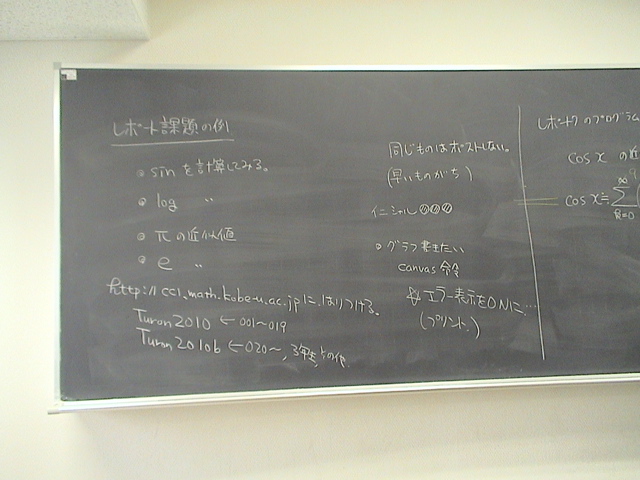 レポート課題の例
• sin を計算してみる。
• log 〃
• π の近似値
• e 〃
http://cc1.math.kobe-u.ac.jp に、はりつける。
Turon2010 ← 001~019
Turon2010b ← 020~, その他
同じものはポストしない。
(早いものがち)
イニシャル
• グラフ書きたい
canvas 命令
エラー表示をONに…
(プリント)
レポートクのプログラム
cos x の近
cos x ≒ ∞ Σ k=0 (